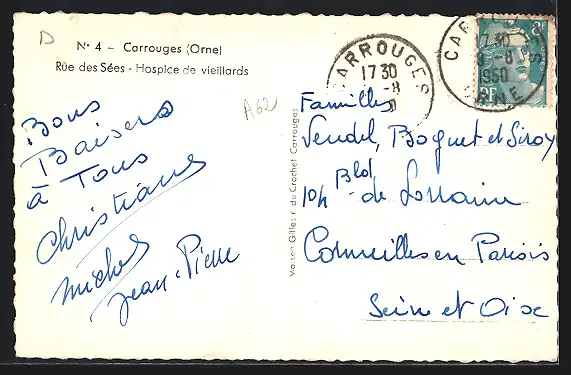 D
N° 4 - Carrouges (Orne)
Rue des Sées - Hospice de vieillards
A62
Bons
Baisers
à Tous
Christiane
Michel
Jean-Pierre
Maison Gilles r. du Crochet Carrouges
CARROUGES
17 30
-8
CARROUGES
17 30
-8
1950
ORNE
Familles
Vendel, Boquet et Siroy
104 Bld de Lorraine
Cormeilles en Parisis
Seine et Oise